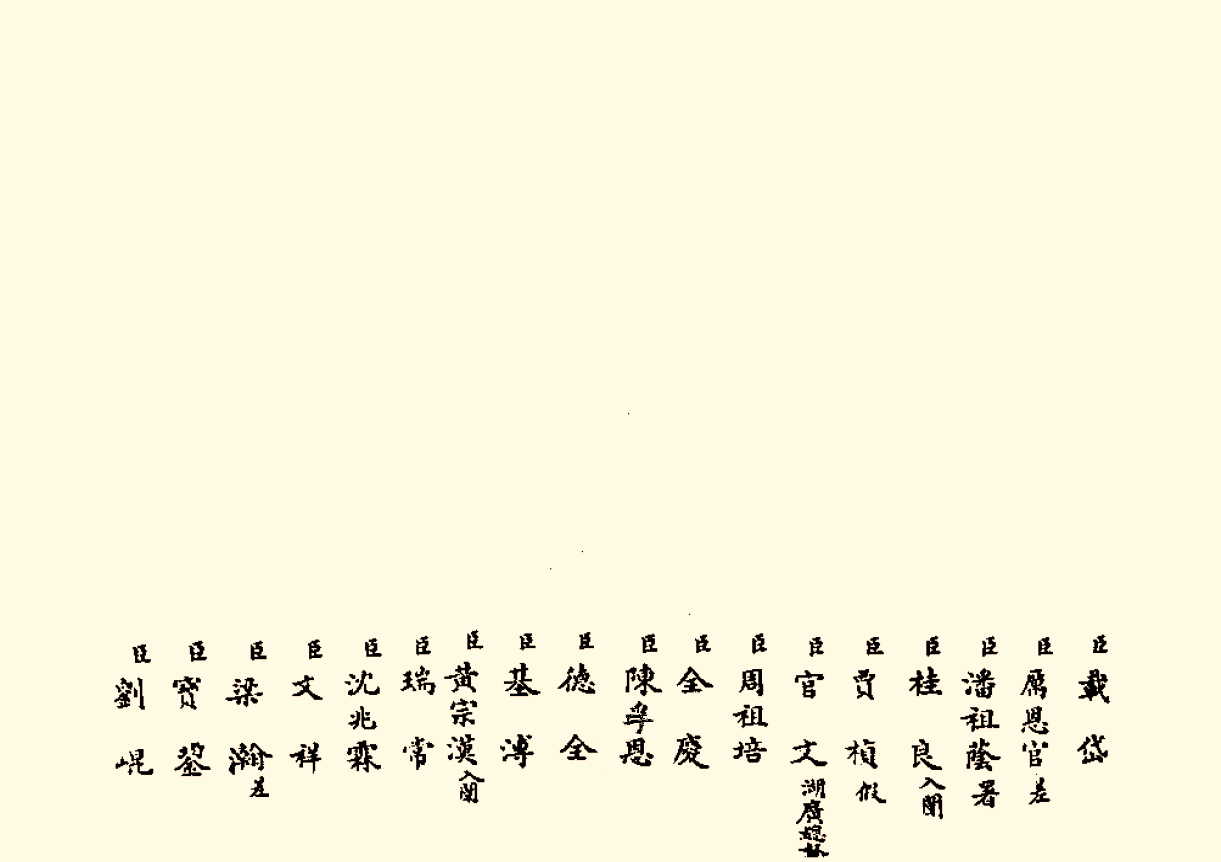 臣載岱
臣厲恩官差
臣潘祖蔭署
臣桂良入闈
臣賈楨假
臣官文湖廣總督
臣周祖培
臣全慶
臣陳孚恩
臣德全
臣基溥
臣黃宗漢入闈
臣瑞常
臣沈兆霖
臣文祥
臣梁瀚差
臣寶鋆
臣劉崐